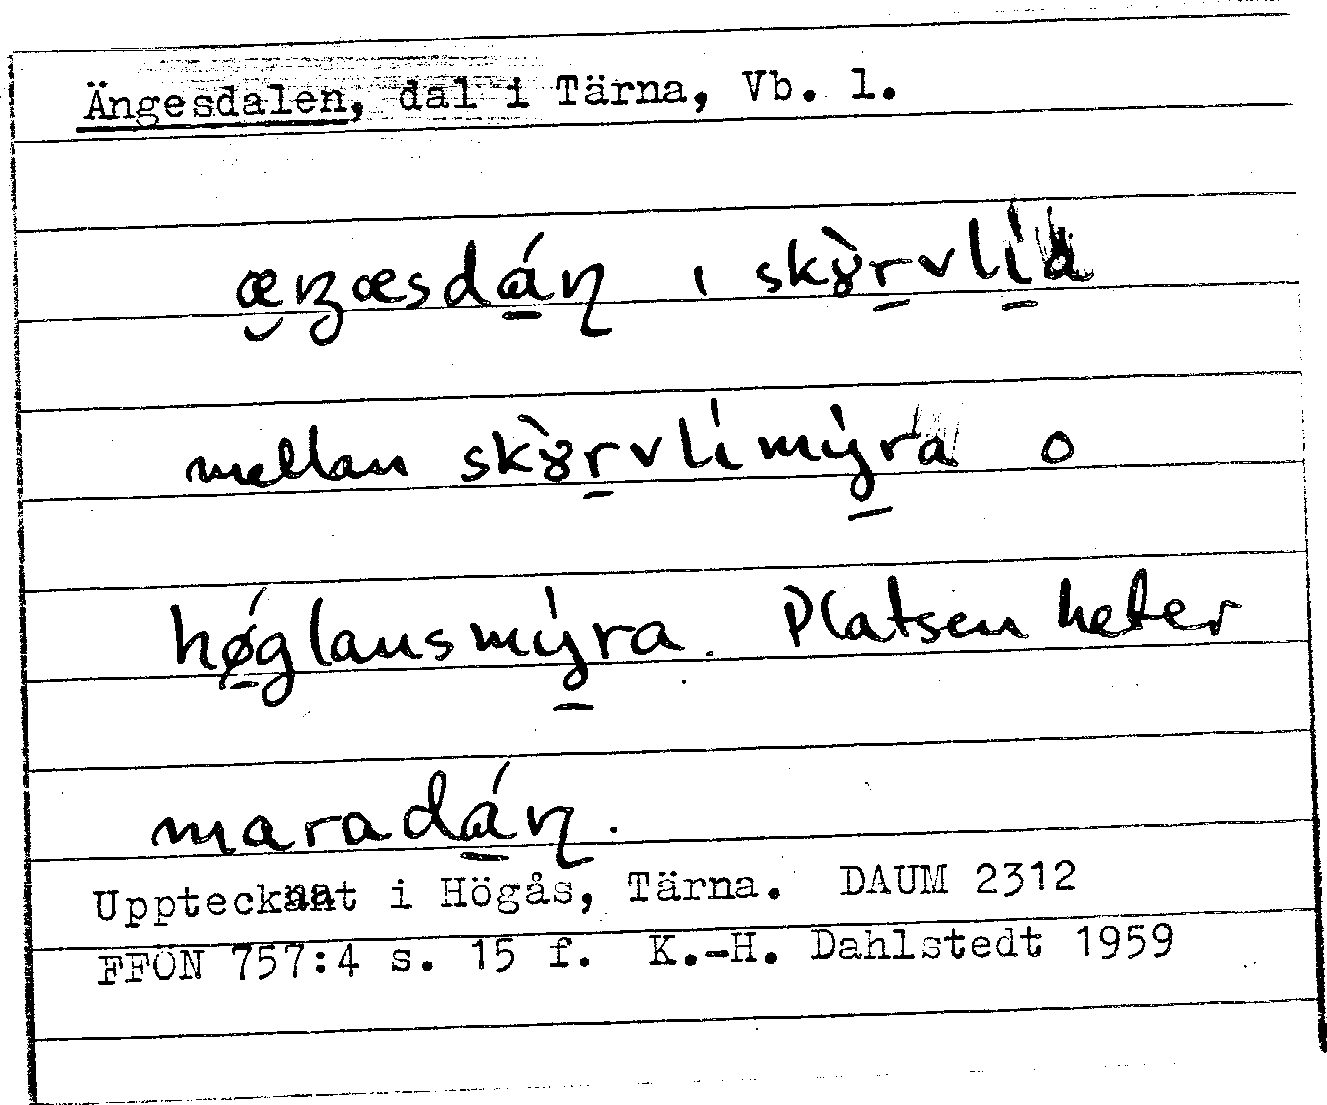 Ängesdalen, dal i Tärna, Vb. l.
æŋæsdáɳ i skɣ̀rvlía
mellan skɣ̀rvlímýra o
høǵlausmýra. Platsen heter
maradáɳ.
Upptecknat i Högås, Tärna. DAUM 2312
FFÖN 757:4 s. 15 f. K.-H. Dahlstedt 1959